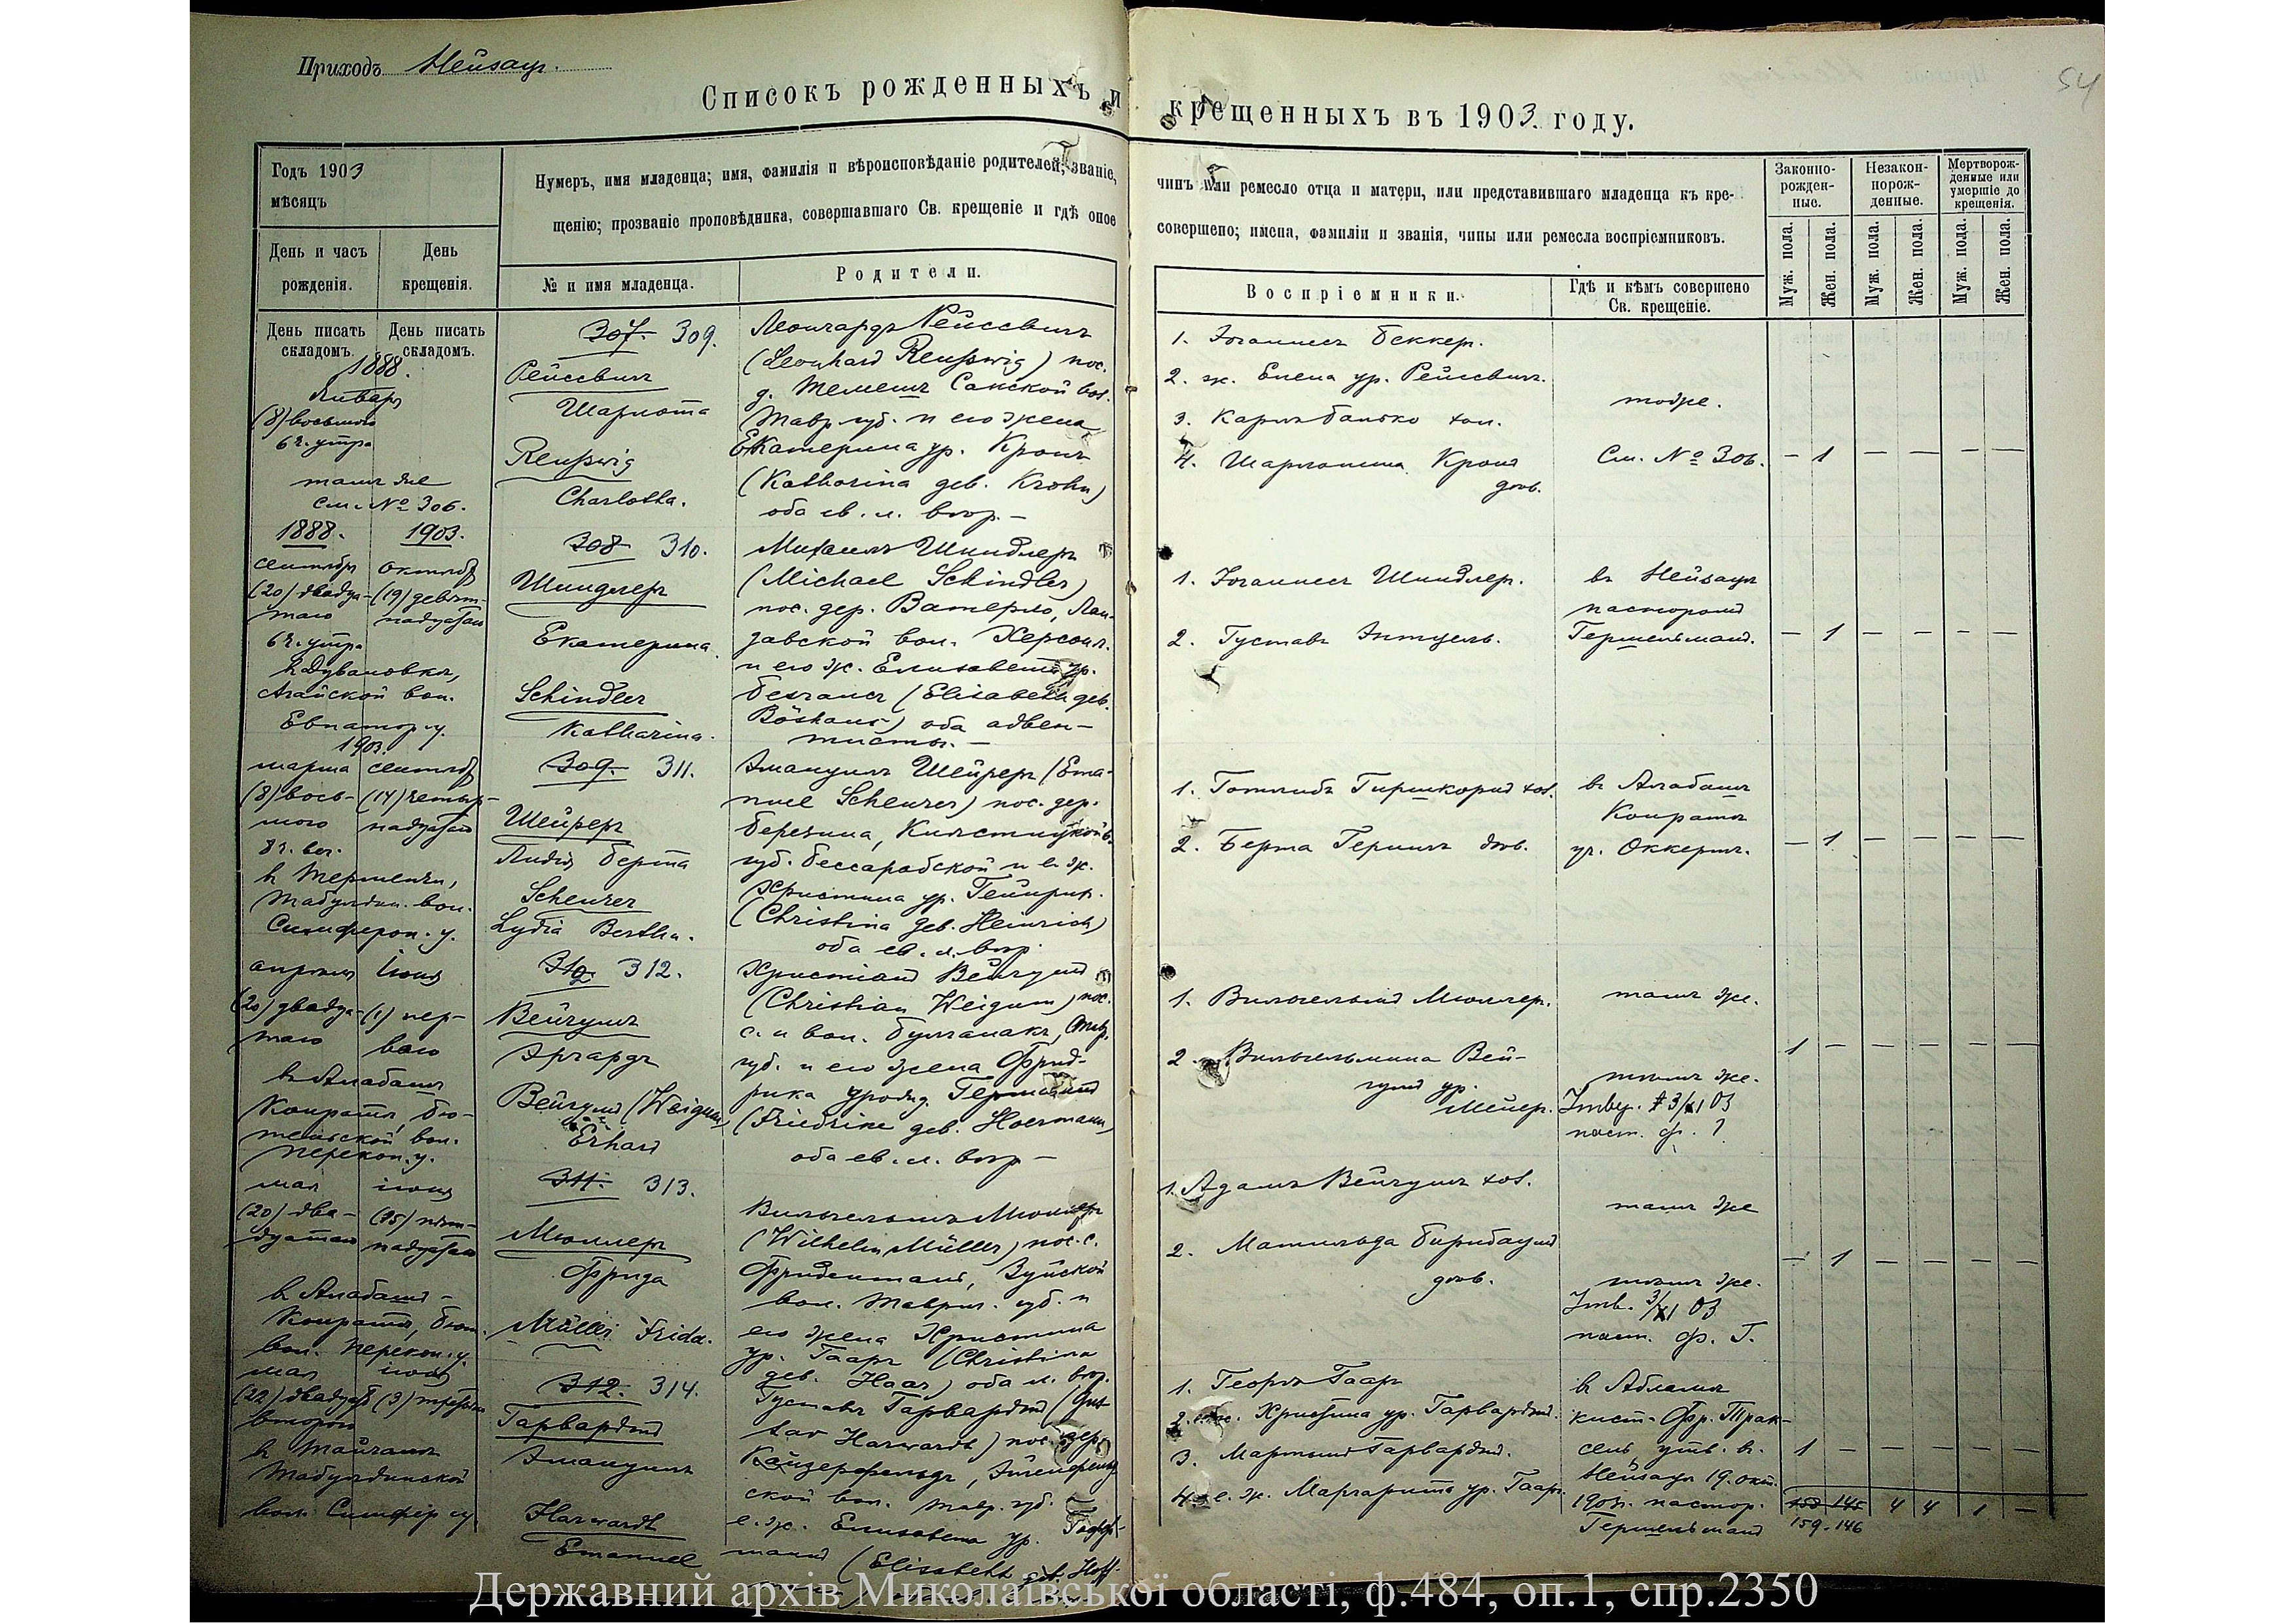 Приходъ Нейзацъ.
54
Списокъ рожденныхъ и крещенныхъ въ 1903 году.
Годъ 1903
мѣсяцъ
День и часъ
рожденія.
День
крещенія.
Нумеръ, имя младенца; имя, фамилія и вѣроисповѣданіе родителей; званіе,
щенію; прозваніе проповѣдника, совершавшаго Св. крещеніе и гдѣ оное
№ и имя младенца.
Родители.
чинъ или ремесло отца и матери, или представившаго младенца къ кре-
совершено; имена, фамиліи и званія, чины или ремесла воспріемниковъ.
Воспріемники.
Гдѣ и кѣмъ совершено
Св. крещеніе.
Законно-
рожден-
ные.
Незакон-
норож-
денные.
Мертворож-
денные или
умершіе до
крещенія.
Муж. пола.
Жен. пола.
Муж. пола.
Жен. пола.
Муж. пола.
Жен. пола.
День писать
складомъ.
День писать
складомъ.
1888.
Января
(8) восьмого
6 ч. утра
тамъ же
см. № 306.
307. 309.
Рейсвигъ
Шарлота
Reußwig
Charlotta.
Леонгардъ Рейсвигъ
(Leonhard Reußwig) пос.
д. Темешъ Сакской вол.
Тавр. губ. и его жена
Екатерина ур. Кронъ
(Katharina geb. Krohn)
оба ев. л. вѣр. –
1. Іоганнесъ Беккеръ.
2. ж. Елена ур. Рейсвигъ.
3. Карлъ хол.
4. Шарлотта Кронъ
дѣв.
тоже.
См. № 306.
– 1 – – – –
1888. 1903.
сентября октября
(20) двадца- (19) девят-
таго надцатаго
6 ч. утра
Евпатор. у.
308 310.
Шиндлеръ
Екатерина
Schindler
Katharina.
Михаилъ Шиндлеръ
(Michael Schindler)
пос. дер. Ватерло, Лан-
давской вол. Херсон.
и его ж. Елизавета ур.
(Elisabeth geb.
Böshans) оба адвен-
тисты. –
1. Іоганнесъ Шиндлеръ.
2. Густавъ Энтцель.
въ Нейзацъ
пасторомъ
– 1 – – – –
1903.
марта сентября
(8) вось- (14) четыр-
мого надцатаго
8 ч. веч.
Симфероп. у.
309. 311.
Шейреръ
Лидія Берта
Scheurer
Lydia Bertha.
Эмануилъ Шейреръ (Ema-
nuel Scheurer) пос. дер.
Березина, Клястицкой в.
губ. Бессарабской и е. ж.
Христина ур. Гейнрих.
(Christina geb. Heinrich)
оба ев. л. вѣр.
2. Берта дѣв.
въ Алабашъ
Конратъ
уч. Оккертъ.
– 1 – – – –
апрѣля Іюня
(20) двадца- (1) пер-
таго ваго
въ Алабашъ
Конратъ, Бю-
тельской вол.
Перекоп. у.
310. 312.
Вейгумъ
Эргардъ
Вейгумъ (Weigum)
Erhard
Христіанъ Вейгумъ
(Christian Weigum) пос.
с. и вол. Булганакъ, Тавр.
губ. и его жена Фрид-
рика урожд. Германнъ
(Friedrike geb. Hoermann)
оба ев. л. вѣр –
1. Вильгельмъ Мюллеръ.
2. Вильгельмина Вей-
гумъ ур.
Мейеръ.
тамъ же.
тѣмъ же.
1 – – – – –
мая іюня
(20) два- (15) пят-
дцатаго надцатаго
въ Алабашъ-
Конратъ, Бют.
вол. Перекоп. у.
311. 313.
Мюллеръ
Фрида
Müller Frida.
Вильгельмъ Мюллеръ
(Wilhelm Müller) пос. с.
Фриденталь, Зуйской
вол. Таврич. губ. и
его жена Христина
ур. Гааръ (Christina
geb. Haar) оба л. вѣр.
1. Адамъ Вейгумъ хол.
2. Матильда Бирибаумъ
дѣв.
тамъ же
тѣмъ же.
– 1 – – – –
мая іюня
(22) двадцать (3) третьяго
второго
вол. Симфер. у.
312. 314.
Гарвардтъ
Эмануилъ
Harwardt
Emanuel
Густавъ Гарвардтъ (Gus-
tav Harwardt) пос. дер.
ской вол. Тавр. губ.
е. ж. Елизавета ур. Гофф-
маннъ (Elisabeth geb. Hoff-
1. Георгъ Гааръ
2. Христина ур. Гарвардтъ.
3. Мартинъ Гарвардтъ.
4. е. ж. Маргарита ур. Гааръ.
утв. въ
Нейзацъ 19. окт.
1903. пастор.
1 – – – – –
4 4 1 –
159. 146
Державний архів Миколаївської області, ф.484, оп.1, спр.2350